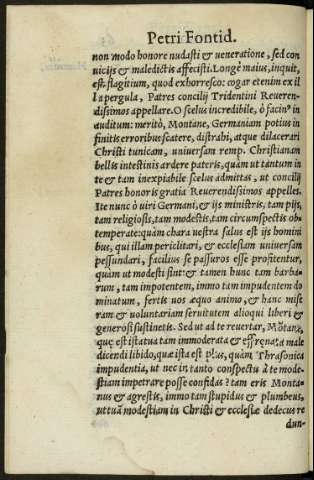 Petri Fontid.
non modo honore nudasti & ueneratione, sed con
uicijs & maledictis affecisti. Longè maius, inquit,
est flagitium, quod exhorresco: cogar etenim ex il
la pergula, Patres concilij Tridentini Reueren-
dissimos appellare. O scelus incredibile, ò facin⁹ in
auditum: meritò, Montane, Germaniam potius in
finitis erroribus scatere, distrahi, atque dilacerari
Christi tunicam, uniuersam remp. Christianam
bellis intestinis ardere pateris, quàm ut tantum in
te & tam inexpiabile scelus admittas, ut concilij
Patres honoris gratia Reuerendissimos appelles.
Ite nunc ò uiri Germani, & ijs ministris, tam pijs,
tam religiosis, tam modestis, tam circumspectis ob-
temperate: quàm chara uestra salus est ijs homini
bus, qui illam periclitari, & ecclesiam uniuersam
pessundari, facilius se passuros esse profitentur,
quàm ut modesti sint: & tamen hunc tam barba-
rum, tam impotentem, immo tam impudentem do
minatum, fertis uos æquo animo, & hanc mise
ram & uoluntariam seruitutem alioqui liberi &
generosi sustinetis. Sed ut ad te reuertar, Mõtane,
quæ est ista tua tam immoderata & effrenata male
dicendi libido, quæ ista est plus, quàm Thrasonica
impudentia, ut nec in tanto conspectu à te mode-
stiam impetrare posse confidas? tam eris Monta-
nus & agrestis, immo tam stupidus & plumbeus,
ut tuã modestiam in Christi & ecclesiæ dedecus re
dun-